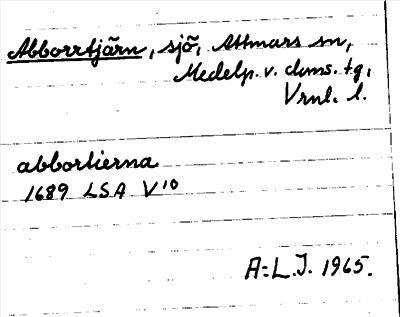 Abborrtjärn, sjö, Attmars sn,
Medelp. v. doms. tg,
Vrnl. l.
abbortierna
1689 LSA V¹⁰
A:L.J. 1965.